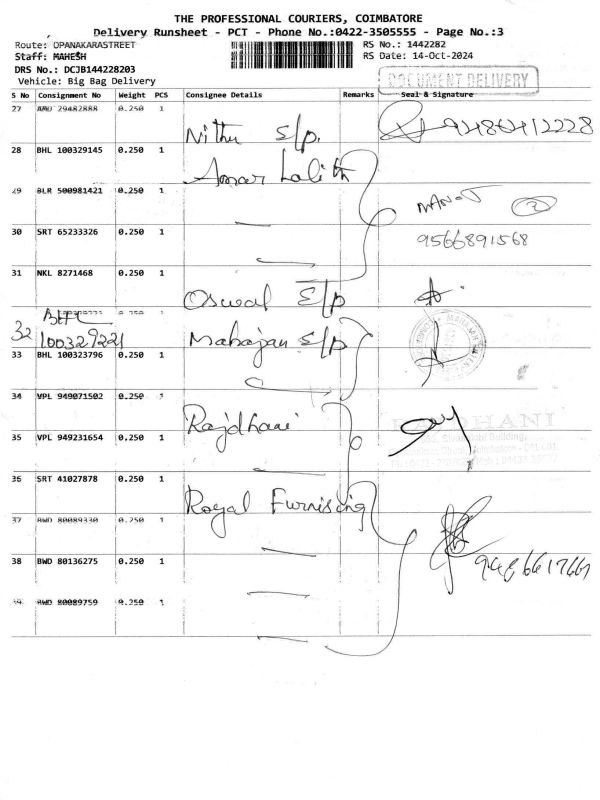 THE PROFESSIONAL COURIERS, COIMBATORE
Delivery Runsheet - PCT - Phone No.:0422-3505555 - Page No.:3
Route: OPANAKARASTREET
RS No.: 1442282
Staff: MAHESH
RS Date: 14-Oct-2024
DRS No.: DCJB144228203
Vehicle: Big Bag Delivery
DOCUMENT DELIVERY
S No Consignment No Weight PCS Consignee Details Remarks Seal & Signature
27 AMD 29482888 0.250 1
Nithu E/p.
28 BHL 100329145 0.250 1
Amar Lalith
29 BLR 500981421 0.250 1
MANOJ
30 SRT 65233326 0.250 1
9566891568
31 NKL 8271468 0.250 1
Oswal E/p
BHL
32 100329221 Mahajan E/p
33 BHL 100323796 0.250 1
34 VPL 949071502 0.250 1
Rajdhani
35 VPL 949231654 0.250 1
36 SRT 41027878 0.250 1
Royal Furnising
37 BWD 80089330 0.250 1
38 BWD 80136275 0.250 1
9486617661
39 BWD 80089759 0.250 1